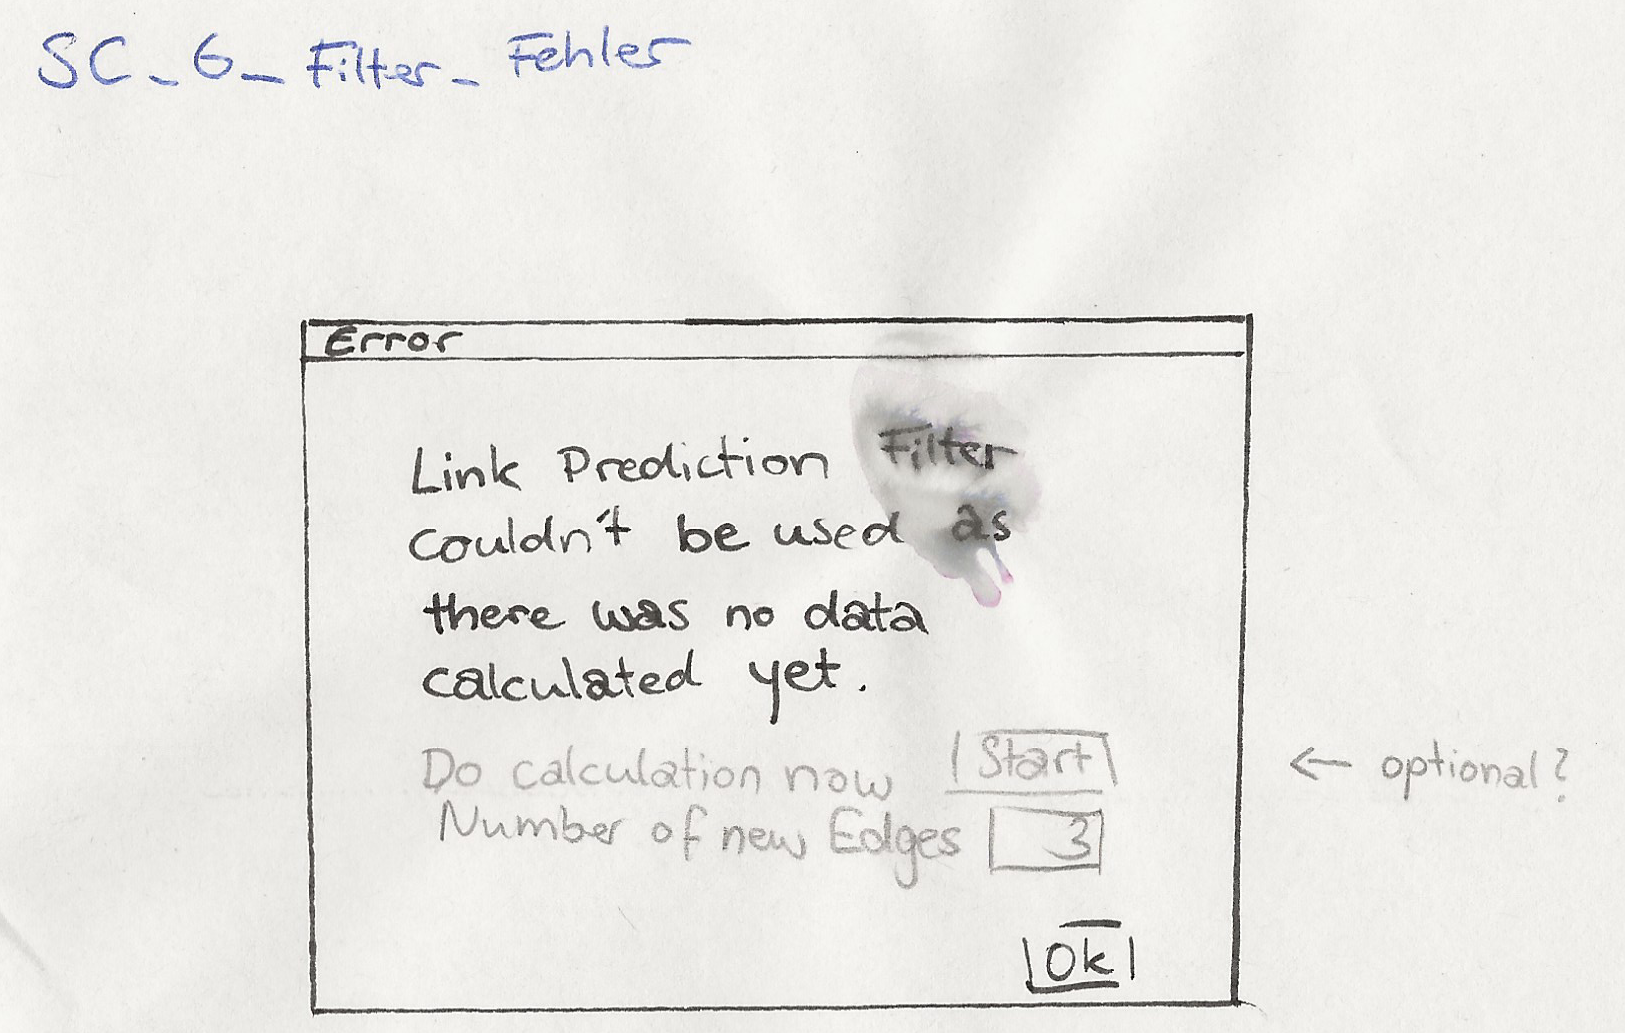 SC_6_Filter_Fehler
Error
Link Prediction Filter
couldn't be used as
there was no data
calculated yet.
Do calculation now Start
← optional?
Number of new Edges 3
Ok